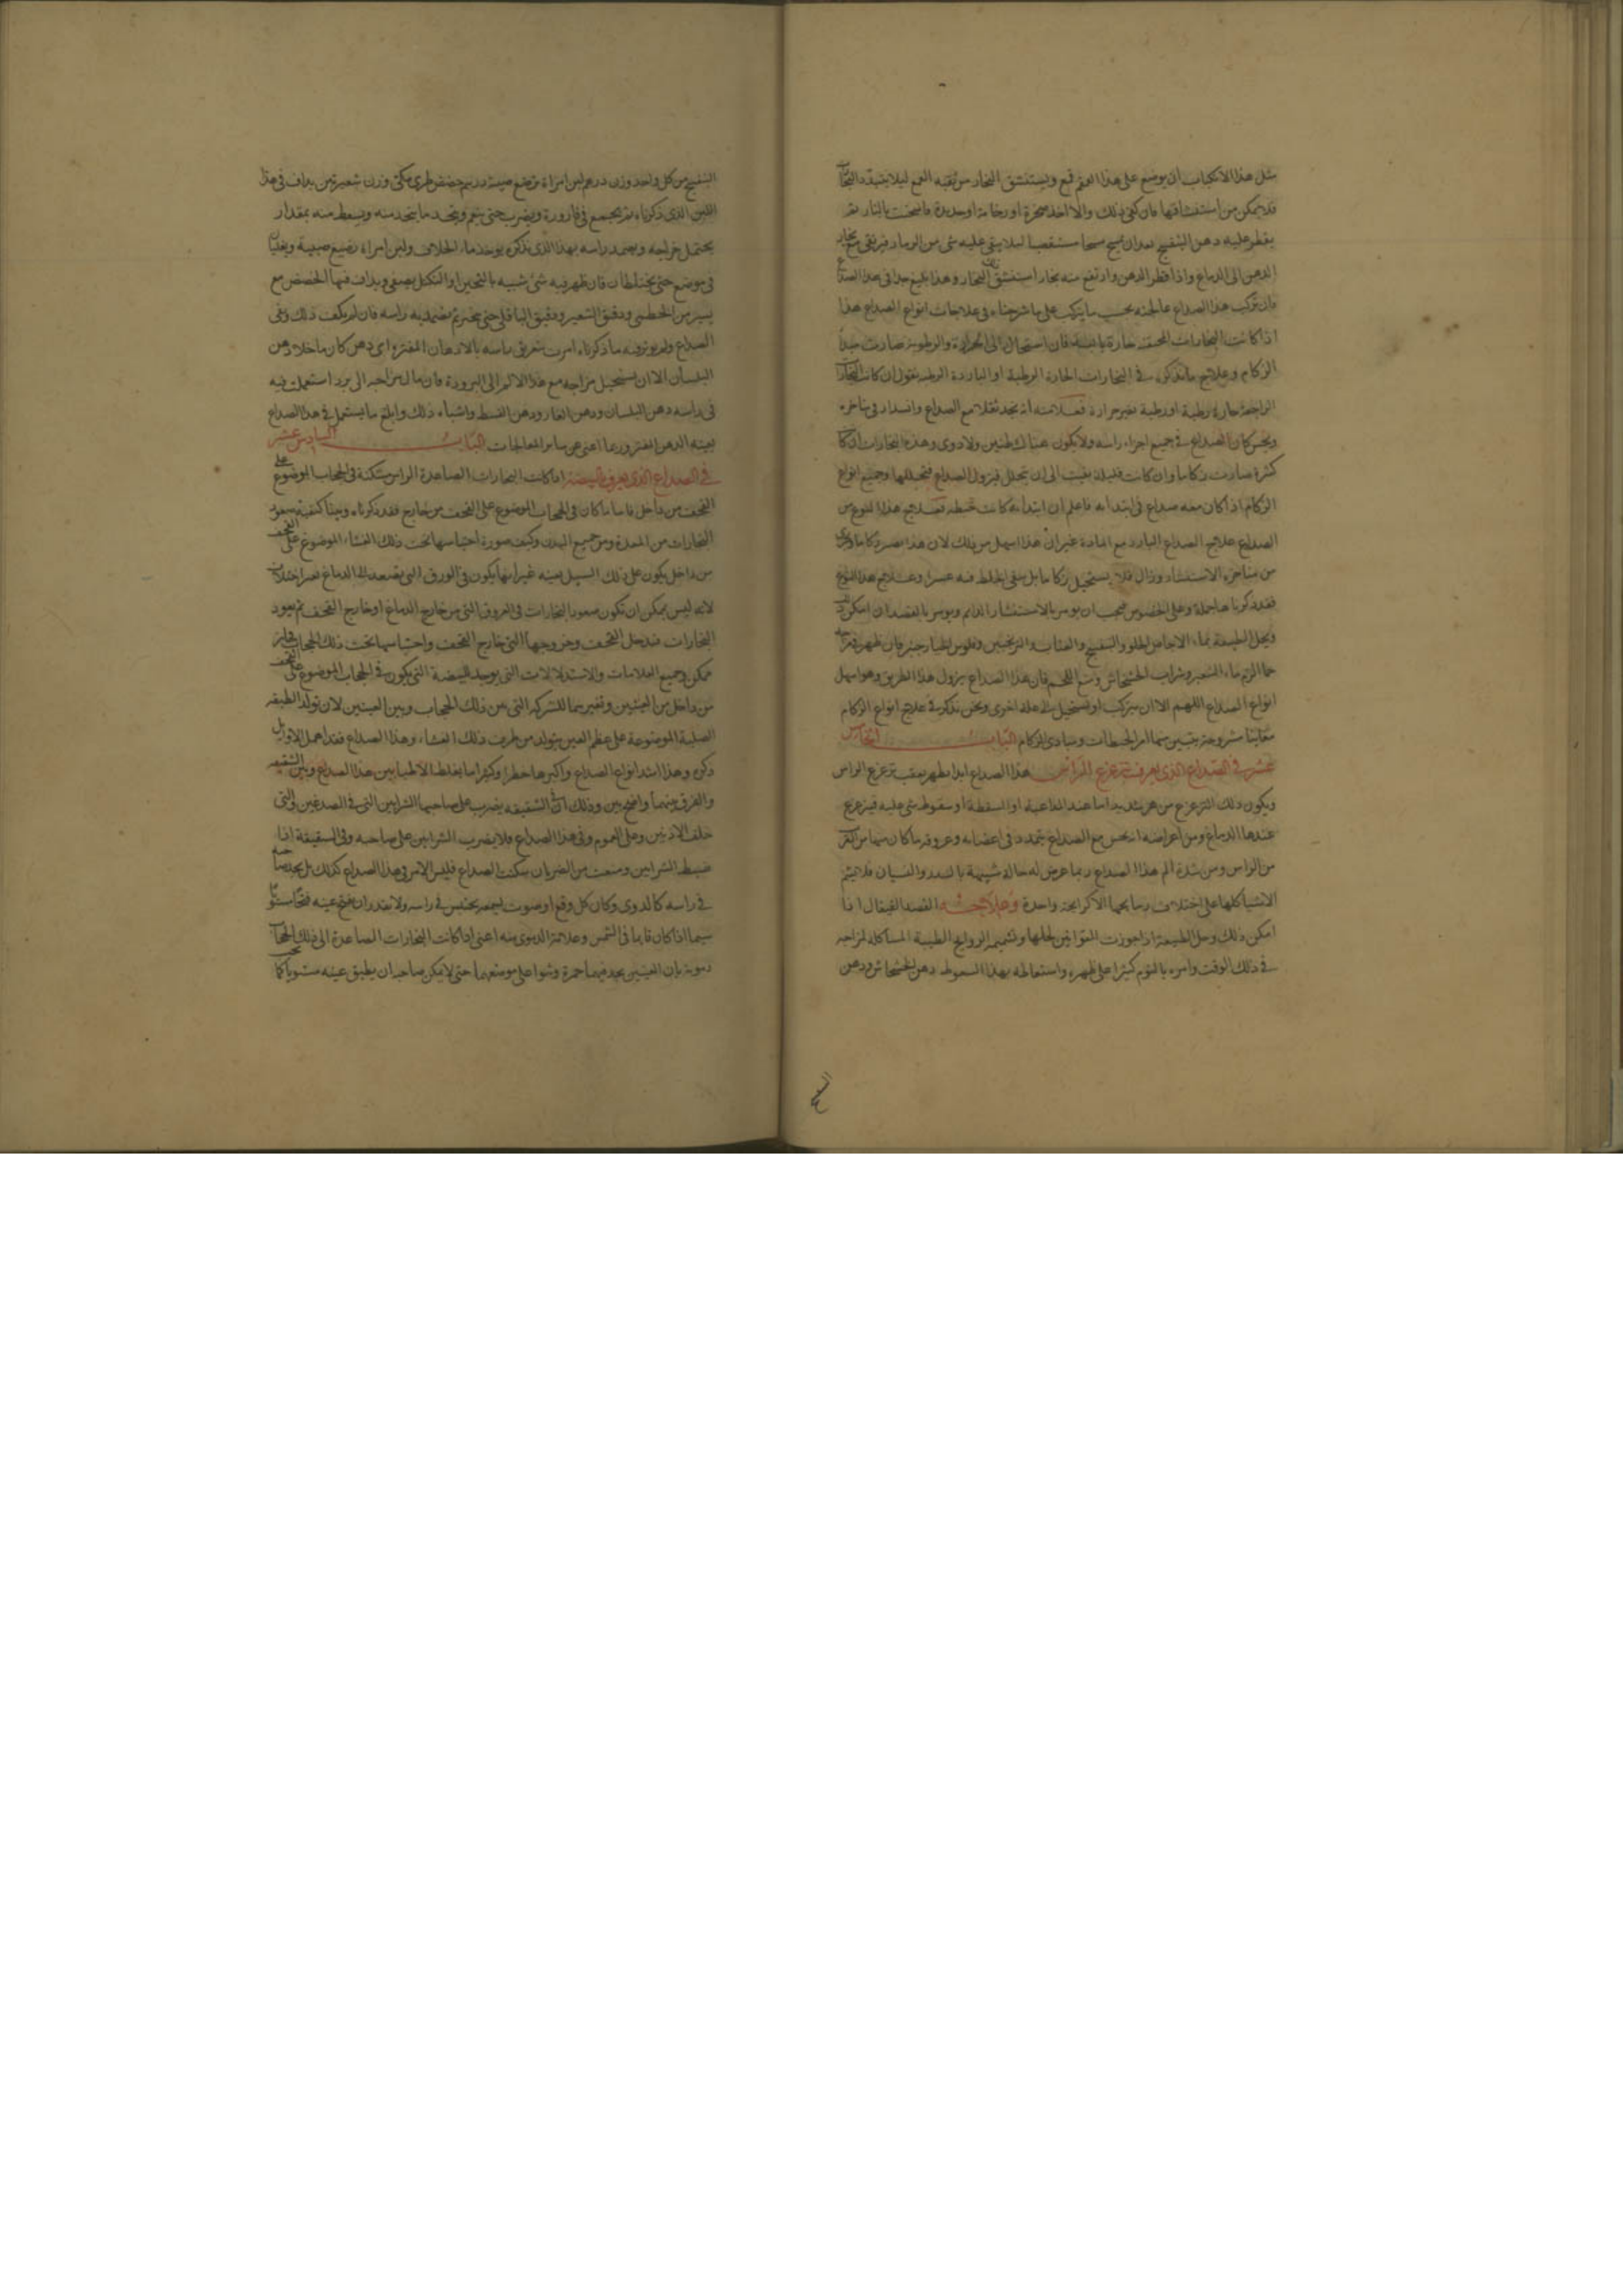 مثل هذا الانكباب ان يوضع على هذا القمقم قمع ويستنشق البخار من ثقبه القمع ليلا يتبدد البخار
فلا يمكن من استنشاقها فان كفى ذلك والا اخذ صخرة او رخامة او حديدة فاسخنت بالنار ثم
يقطر عليه دهن البنفسج بعد ان تمسح مسحا مستقصيا ليلا يبقى عليه شى من الرماد فيرتقى مع بخار
الدهن الى الدماغ واذا قطر الدهن وارتفع منه بخار استنشق ذلك البخار وهذا بليغ جدا فى هذا الصداع
فان تركب هذا الصداع عالجته بحسب ما يتركب على ما شرحناه فى علاجات انواع الصداع هذا
اذا كانت البخارات المحتقنة حارة يابسة فان استحال الى الحرارة والرطوبة صارت مبدأ
الزكام وعلاجه ما نذكره فى البخارات الحارة الرطبة او الباردة الرطبة نقول ان كانت البخارات
الراجعة حارة رطبة او رطبة بغير حرارة فعلامته انه يجد ثقلا مع الصداع وانسداد فى مناخره
ويحس كان الصداع فى جميع اجزاء راسه ولا يكون هناك طنين ولا دوى وهذه البخارات ان كا
كثرة صارت زكاما وان كانت قليلة بقيت الى ان تتحلل فيزول الصداع فتحليلها وجميع انواع
الزكام اذا كان معه صداع فى ابتدائه فاعلم ان ابتداه كانت فعلاج هذا النوع من
الصداع علاج الصداع البارد مع المادة غير ان هذا اسهل من ذلك لان هذا يصير زكاما وجرى
من مناخره الاستنشار وزال فلا يستحيل زكاما بل يبقى الخلط فيه عسرا وعلاج هذا النوع
فقد ذكرناها جملة وعلى الخصوص فيجب ان يومر بالاستنشار الدايم ويومر بالفصد ان امكن ذلك
ويحل الطبيعة بماء الاجاص الحلو والبنفسج والعناب والترنجبين وفلوس الخيار جنبر فان ظهر فيه
حما الزم ماء الشعير وشراب الخشخاش ومنع اللحم فان هذا الصداع يزول هذا الطريق وهو اسهل
انواع الصداع اللهم الا ان يتركب او يستحيل الى علة اخرى ونحن نذكر فى علاج انواع الزكام
معانينا مشروحة بتبيين سيما امر الخبطات ومبادى الزكام الباب الخامس
عشر فى الصداع الذى يعرف بتزعزع الراس هذا الصداع ابدا يظهر بعقب تزعزع الراس
ويكون ذلك التزعزع من هز شديد اما عند المداعبة او السقطة او سقوط شى عليه فيتزعزع
عندها الدماغ ومن اعراضه انه يحس مع الصداع بتمدد فى اعضابه وعروقه ما كان سيما من القر
من الراس ومن شدة الم هذا الصداع ربما عرض له حالة شبيهة بالسدر والنسيان فلا يشم
الاشيا كلها على اختلاف روايحها الا كرايحة واحدة وعلاجه الفصد القيفال اذا
امكن ذلك وحل الطبيعة اذا جوزت القوانين لحلها وتشميمه الروايح الطيبة المشاكلة لمزاجه
فى ذلك الوقت وامره بالنوم كثيرا على ظهره واستعاطه بهذا السعوط دهن الخشخاش ودهن
البنفسج من كل واحد وزن درهم لبن امراة ترضع صبية درهم حضض طرى مكى وزن شعيرتين يداف فى هذا
اللبن الذى ذكرناه ثم يجمع فى قارورة ويضرب حتى ينعم ويتحد ما يتحد منه ويسعط منه بمقدار
يحتمل مزاجه ويضمد راسه بهذا الذى نذكره يوخذ ماء الخلاف ولبن امراة رضيع صبية ويغليان
فى موضع حتى يختلطان فان ظهر فيه شى شبيه بالتجبن او التكتل يصفى ويداف فيها الحضض مع
يسير من الخطمى ودقيق الشعير ودقيق الباقلى حتى يختم ثم يضمد به راسه فان لم يكف ذلك وبقى
الصداع ولم يوثر فيه ما ذكرناه امرت بتعريق راسه بالادهان المفترة اى دهن كان ما خلا دهن
البلسان الا ان يستحيل مزاجه مع هذا الالم الى البرودة فان مال مزاجه الى برد استعملت فيه
فى راسه دهن البلسان ودهن الغار ودهن القسط واشباه ذلك وابلغ ما يستعمل فى هذا الصداع
بعينه الدهن المفتر وربما اغنى عن ساير المعالجات الباب السادس عشر
فى الصداع الذى يعرف بالبيضة اذا كانت البخارات الصاعدة الى الراس متمكنة فى الحجاب الموضوع على
القحف من داخل فاما ما كان فى الحجاب الموضوع على القحف من خارج فقد ذكرناه وبينا كيفية صعود
البخارات من المعدة ومن جميع البدن وكيف صورة احتباسها تحت ذلك الغشاء الموضوع على القحف
من داخل يكون على ذلك السبيل بعينه غير انها يكون فى العروق التى تصعد الى الدماغ بغير اختلاف
لانه ليس يمكن ان تكون صعود البخارات فى العروق التى من خارج الدماغ او خارج القحف ثم يعود
البخارات فتدخل القحف وخروجها التى خارج القحف واحتباسها تحت ذلك الحجاب فجايز
ممكن وجميع العلامات والاستدلالات التى يوجد للبيضة التى يكون فى الحجاب الموضوع على القحف
من داخل من العينين وتغيرهما للشركة التى بين ذلك الحجاب وبين العينين لان تولد الطبقة
الصلبة الموضوعة على عظم العين يتولد من طرف ذلك الغشاء وهذا الصداع فقد اهمل الاوايل
ذكره وهذا اشد انواع الصداع واكبرها خطرا وكثيرا ما يغلط الاطبا بين هذا الصداع وبين الشقيقة
والفرق بينهما واضح بين وذلك ان فى الشقيقة يضرب على صاحبها الشرايين التى فى الصدغين والتى
خلف الاذنين وعلى العموم وفى هذا الصداع فلا يضرب الشرايين على صاحبه وفى الشقيقة اذا
ضبط الشرايين ومنعت من الضربان سكنت الصداع فليس الامر فى هذا الصداع كذلك بل يجد صاحبه
فى راسه كالدوى وكان كل وقع او صوت يسمعه يحتبس فى راسه ولا يقدر ان يفتح عينه فتحا مستويا
سيما اذا كان قايما فى الشمس وعلامة الدموى منه اعنى اذا كانت البخارات الصاعدة الى ذلك الحجاب
دموية بان العينين يجد فيهما حمرة ونتوا على موضعهما حتى لا يمكن صاحبه ان يطبق عينه مستويا كما